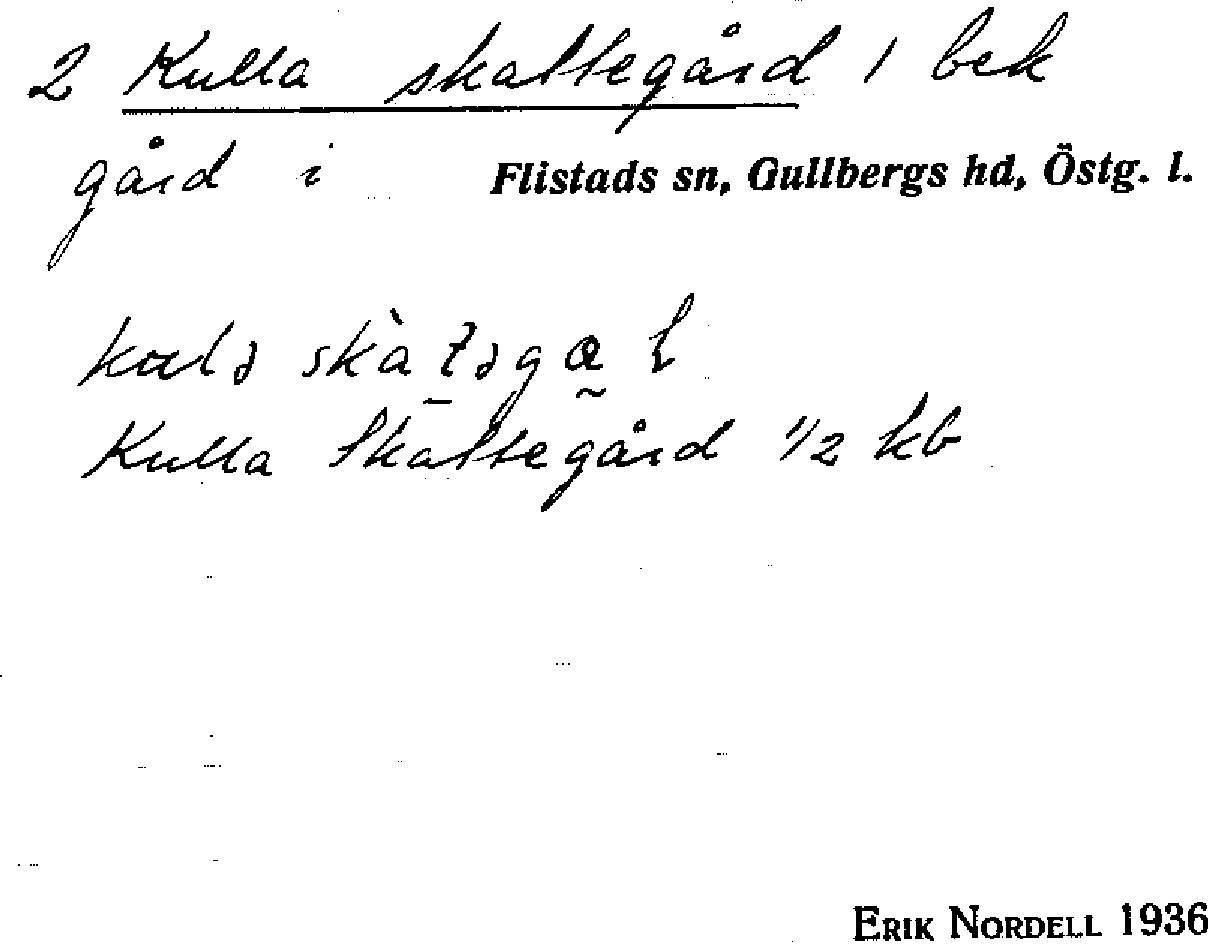 2 Kulla skattegård 1 bek
gård i Flistads sn, Gullbergs hd, Östg. l.
Kulla Skattegård 1/2 kb
ERIK NORDELL 1936